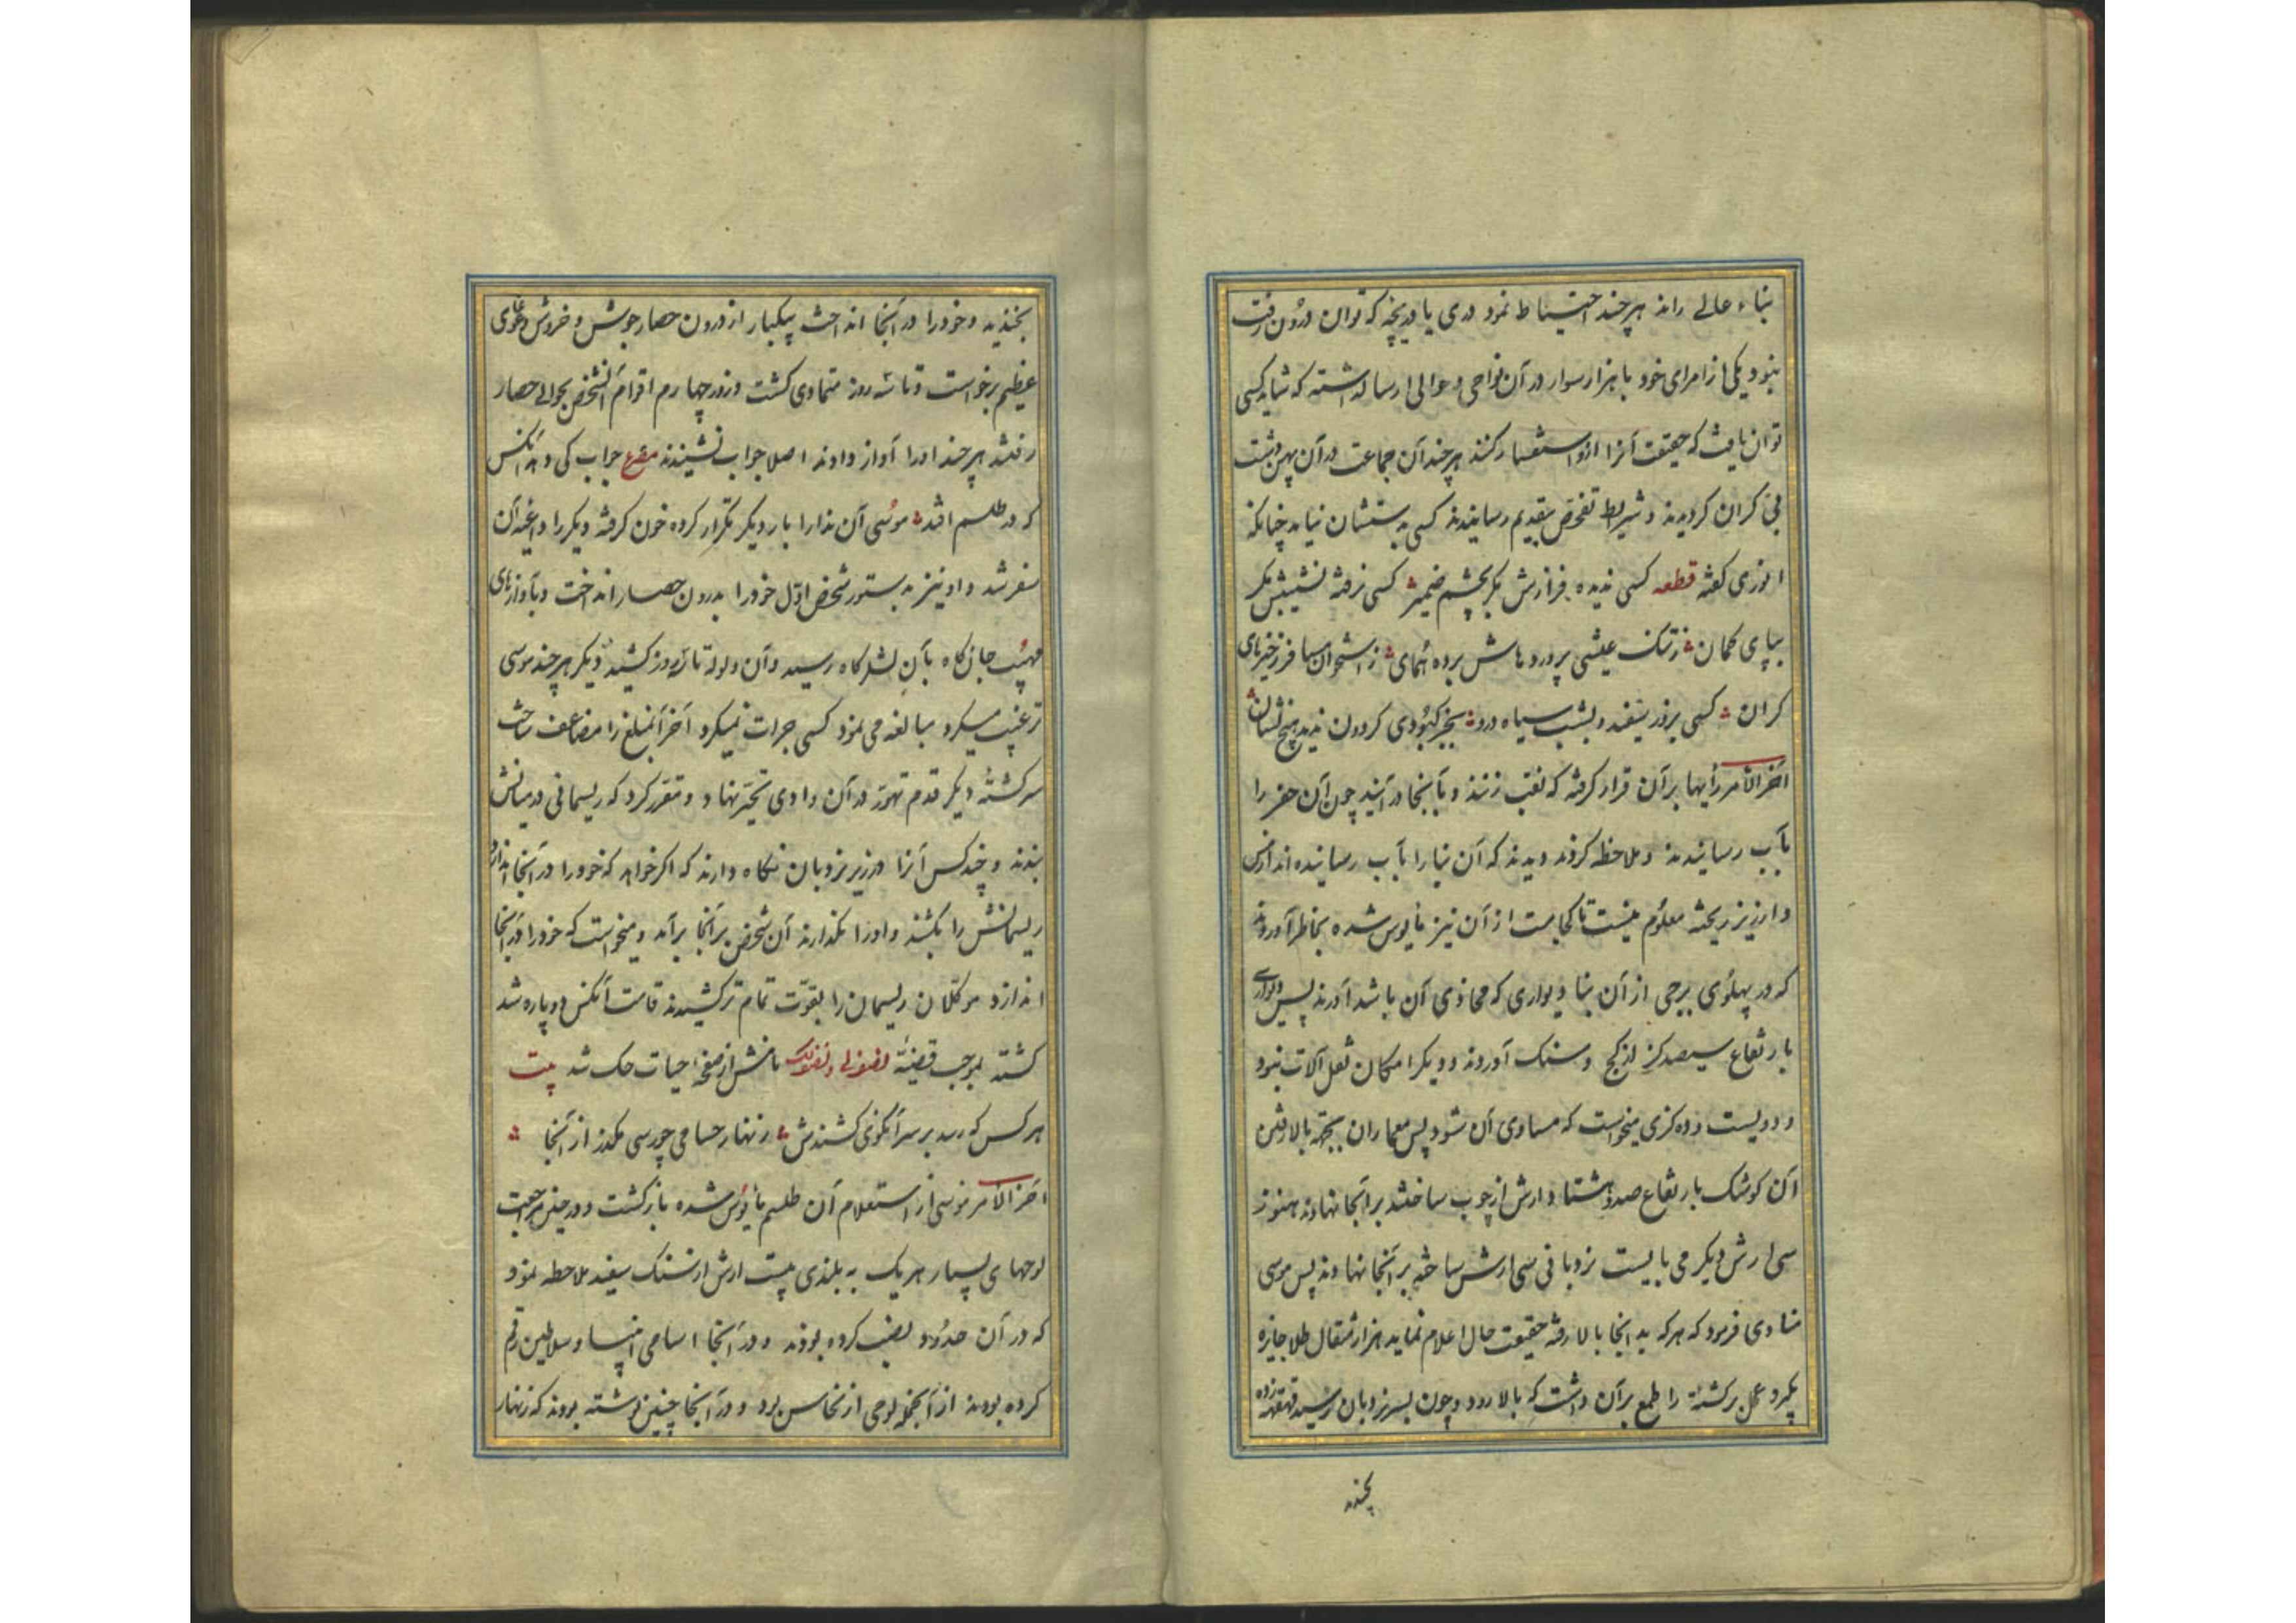 بناء عالی راند هر چند احتیاط نمود دری یا دریچه که توان درون رفت
نبود یکی از امرای خود با هزار سوار در آن نواحی و حوالی ارسال داشته که شاید کسی
توان یافت که حقیقت آنرا ازو استفسار کنند هر چند آن جماعت در آن پهن دشت
بی کران گردیدند و شرایط تفحص بتقدیم رسانیدند کسی بدستشان نیامد چنانکه
انوری گفته قطعه کسی ندیده فرازش مگر بچشم ضمیر کسی نرفته نشیبش مگر
بپای گمان ز تنگ عیشی پرورده هاش برده همای ز استخوان مسافر ذخیرهای
گران کسی بروز سفید و بشب سیاه درو بجز کبودی گردون ندید هیچ نشان
آخر الامر رأیها بر آن قرار گرفته که نقب زنند و بآنجا در آیند چون آن حفر را
بآب رسانیدند و ملاحظه کردند دیدند که آن بنا را بآب رسانیده اند از مس
و ارزیز ریخته معلوم نیست تا کجاست از آن نیز مأیوس شده بخاطر آوردند
که در پهلوی برجی از آن بنا دیواری که محاذی آن باشد آورند پس دیواری
بارتفاع سیصد گز از گچ و سنگ آوردند و دیگر امکان نقل آلات نبود
و دویست و ده گزی میخواست که مساوی آن شود پس معماران بجهة بالا رفتن
آن کوشک بارتفاع صد و هشتاد ارش از چوب ساختند بر آنجا نهادند هنوز
سی ارش دیگر می بایست نردبانی سی ارش ساخته بر آنجا نهادند پس موسی
منادی فرمود که هر که بدانجا بالا رفته حقیقت حال اعلام نماید هزار مثقال طلا جایزه
بگیرد عمل برگشتهٔ را طمع بر آن داشت که بالا رود و چون بسر نردبان رسید قهقهه زده
بخندید
بخندید و خود را در آنجا انداخت بیکبار از درون حصار جوش و خروش و غوغای
عظیم برخواست و تا سه روز متمادی گشت و روز چهارم اقوام آنشخص بحوالی حصار
رفتند هر چند او را آواز دادند اصلا جواب نشنیدند مصرع جواب کی دهد آنکس
که در طلسم افتد موسی آن ندا را بار دیگر تکرار کرده خون گرفته دیگر را داعیه آن
سفر شد و او نیز بدستور شخص اول خود را بدرون حصار انداخت و بآوازهای
مهیب جان کاه بآن لشکرگاه رسید و آن ولوله تا سه روز کشید دیگر هر چند موسی
ترغیب میکرد مبالغه می نمود کسی جرات نمیکرد آخر آنمبلغ را مضاعف ساخت
سرگشتهٔ دیگر قدم تهور در آن وادی تحیر نهاد و مقرر کرد که ریسمانی در میانش
بندند و چند کس آنرا در زیر نردبان نگاه دارند که اگر خواهد که خود را در آنجا اندازد
ریسمانش را بکشند و او را نگذارند آن شخص بر آنجا برآمد و میخواست که خود را در آنجا
اندازد موکلان ریسمان را بقوت تمام تر کشیدند قامت آنکس دو پاره شد
کشته بموجب قضیهٔ نامش از صفحهٔ حیات حک شد بیت
هر کس که رسد بر سر آنکوی کشندش زنهار حسامی چو رسی مگذر از آنجا
آخر الامر موسی از استعلام آن طلسم مأیوس شده بازگشت و در حین مراجعت
لوحهای بسیار هر یک به بلندی بیست ارش از سنگ سفید ملاحظه نمود
که در آن حدود نصب کرده بودند و در آنجا اسامی انبیا و سلاطین رقم
کرده بودند از آنجمله لوحی از نحاس بود و در آنجا چنین نوشته بودند که زنهار